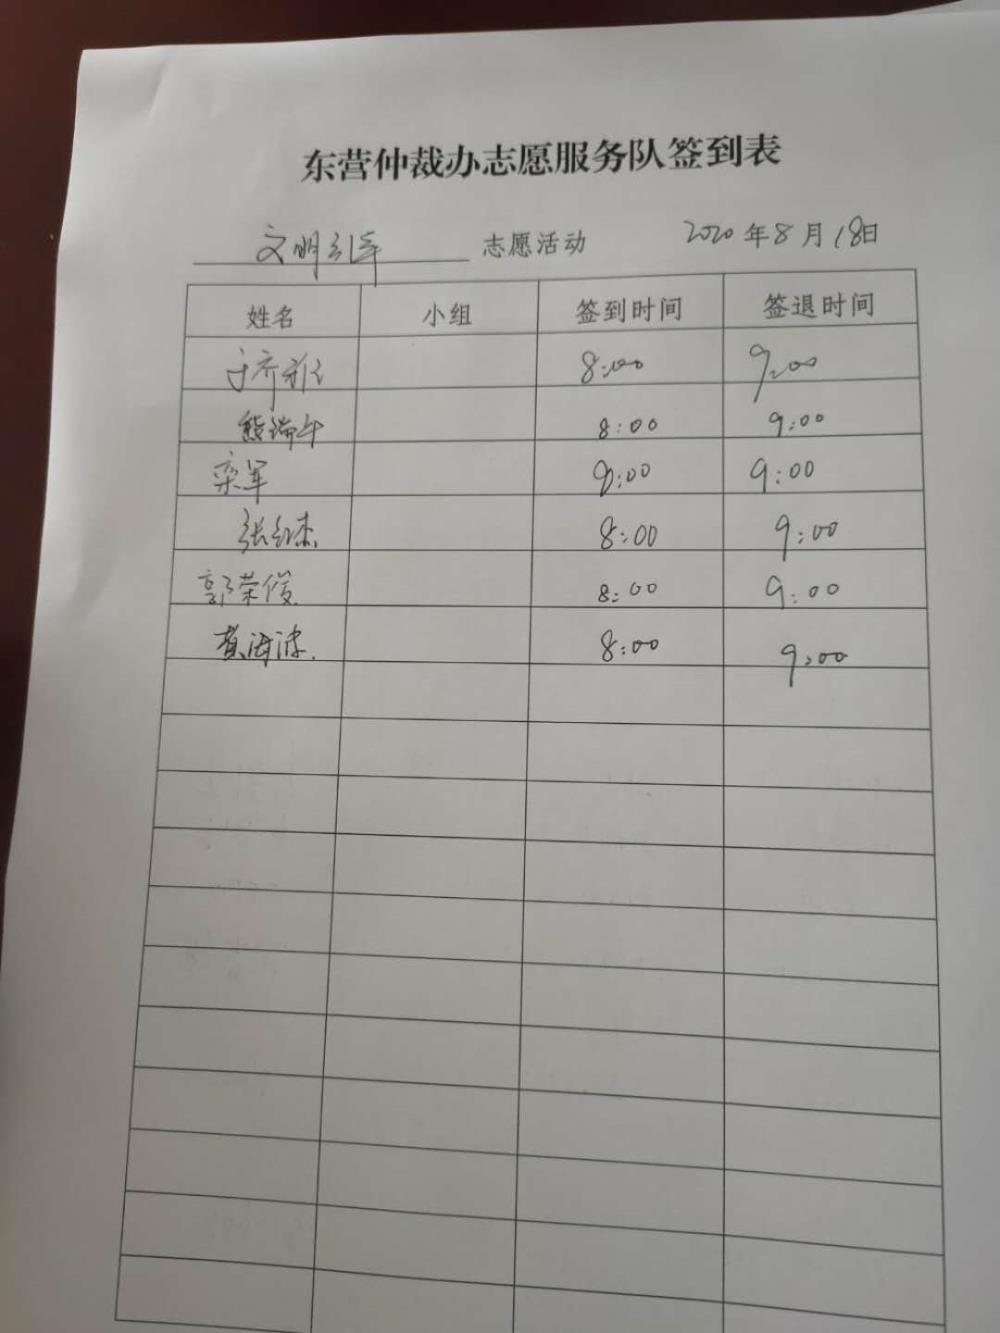 东营仲裁办志愿服务队签到表
文明引导 志愿活动 2020年8月18日
姓名 小组 签到时间 签退时间
8:00 9:00
熊端午 8:00 9:00
栾军 8:00 9:00
张红杰 8:00 9:00
郭荣俊 8:00 9:00
黄海涛 8:00 9:00